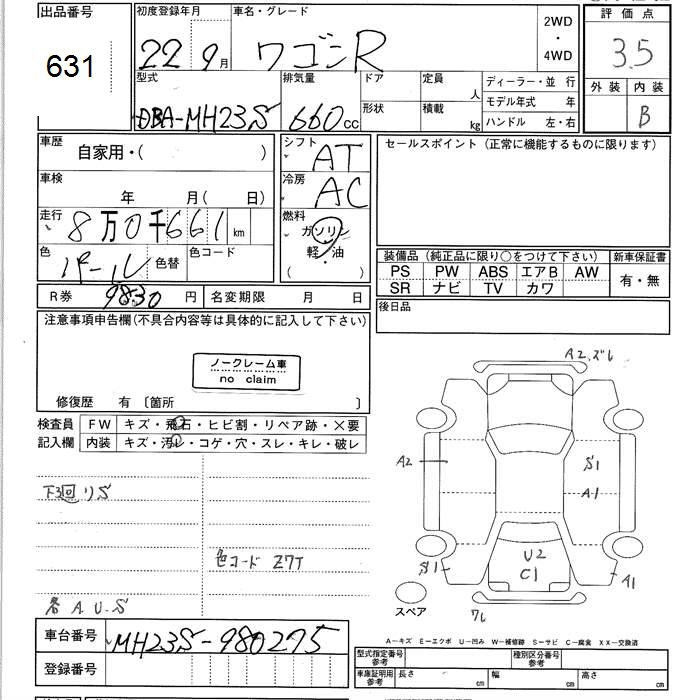 出品番号
631
初度登録年月
22 9月
車名・グレード
ワゴンR
2WD
・
4WD
評価点
3.5
外装 内装
B
型式
DBA-MH23S
排気量
660cc
ドア
形状
定員
人
積載
kg
ディーラー・並 行
モデル年式 年
ハンドル 左・右
車歴
自家用・( )
シフト
AT
セールスポイント(正常に機能するものに限ります)
車検
年 月( 日)
冷房
AC
走行
8万0千661km
燃料
ガソリン
軽・油
( )
色
パール
色替
色コード
装備品(純正品に限り○をつけて下さい)
新車保証書
PS PW ABS エアB AW
SR ナビ TV カワ
有・無
R券
9830円
名変期限 月 日
後日品
注意事項申告欄(不具合内容等は具体的に記入して下さい)
ノークレーム車
no claim
修復歴 有〔箇所 〕
検査員
記入欄
FW キズ・飛石・ヒビ割・リペア跡・×要
内装 キズ・汚レ・コゲ・穴・スレ・キレ・破レ
下3回りS
色コード Z7T
各A.U.S
A2.ズレ
A2
S1
A1
U2
C1
S1
A1
スペア
フレ
車台番号
MH23S-980275
登録番号
A―キズ E―エクボ U―凹み W―補修跡 S―サビ C―腐食 XX―交換済
型式指定番号
参考
種別区分番号
参考
車庫証明用
参考
長さ cm 幅 cm 高さ cm